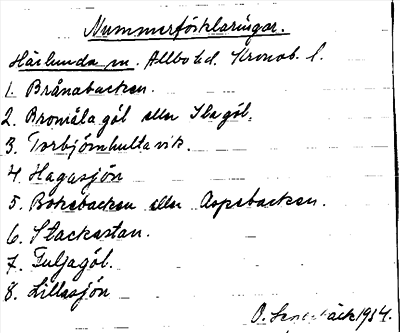 Nummerförklaringar.
Härlunda sn. Allbo hd. Kronob. l.
1. Brånabacken.
2. Bromåla göl eller Ilagöl.
3. Torbjörnhultavik.
4. Hagasjön
5. Bokebacken eller Aspebacken.
6. Stackastan.
7. Fuljagöl.
8. Lillasjön
O. 1934.